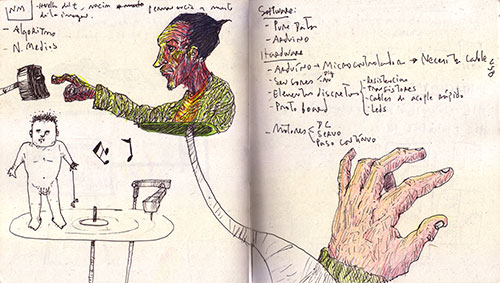 NM
de la imagen.
- Algoritmo
- N. Medios
Software:
- Pure Data
- Arduino
Hardware
- Arduino → Microcontrolador → Necesita cable
- Sensores
- Elementos discretos
- Resistencias
- Transistores
- Cables de acople rápido
- Leds
- Protoboard
- Motores
DC
Servo
Paso continuo